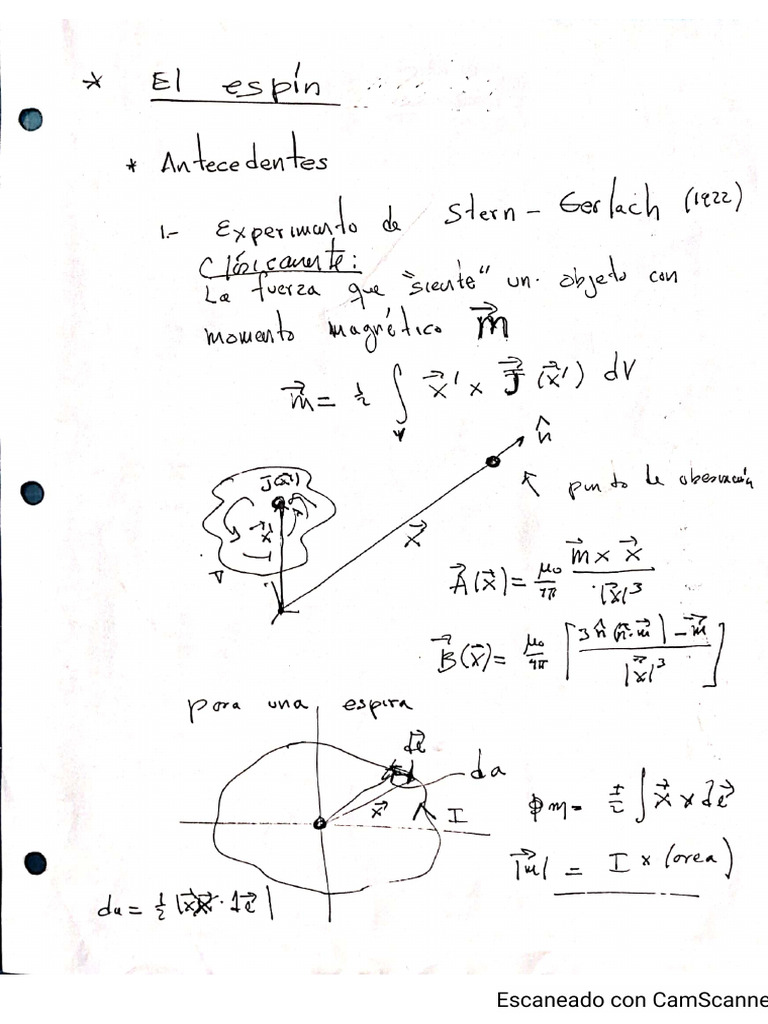 * El espín
* Antecedentes
1.- Experimento de Stern - Gerlach (1922)
Clásicamente:
La fuerza que "siente" un objeto con
momento magnético m⃗
m⃗ = 1/2 ∫_V x⃗' × J⃗(x⃗') dV
n̂
J(x⃗')
punto de observación
x⃗'
x⃗
V
A⃗(x⃗) = μ₀/4π (m⃗ × x⃗)/|x⃗|³
B⃗(x⃗) = μ₀/4π [(3n̂(n̂·m⃗) - m⃗)/|x⃗|³]
para una espira
dl⃗
da
x⃗
I
m = I/2 ∫ x⃗ × dl⃗
|m⃗| = I × (area)
da = 1/2 |x⃗ × dl⃗|
Escaneado con CamScanne